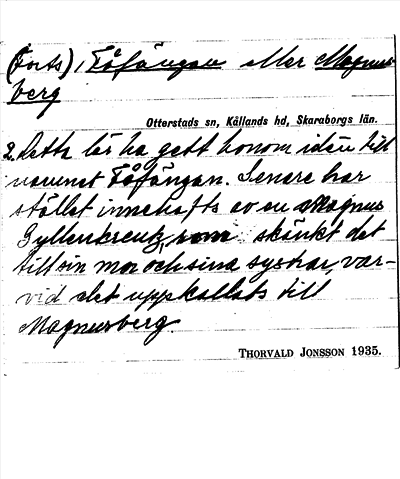 (Forts), Fåfängan eller Magnus
berg
Otterstads sn, Kållands hd, Skaraborgs län.
2. Detta lär ha gett honom idén till
namnet Fåfängan. Senare har
stället innehafts av en Magnus
Gyllenkreutz, som skänkt det
till sin mor och sina systrar, var-
vid det uppkallats till
Magnusberg.
THORVALD JONSSON 1935.